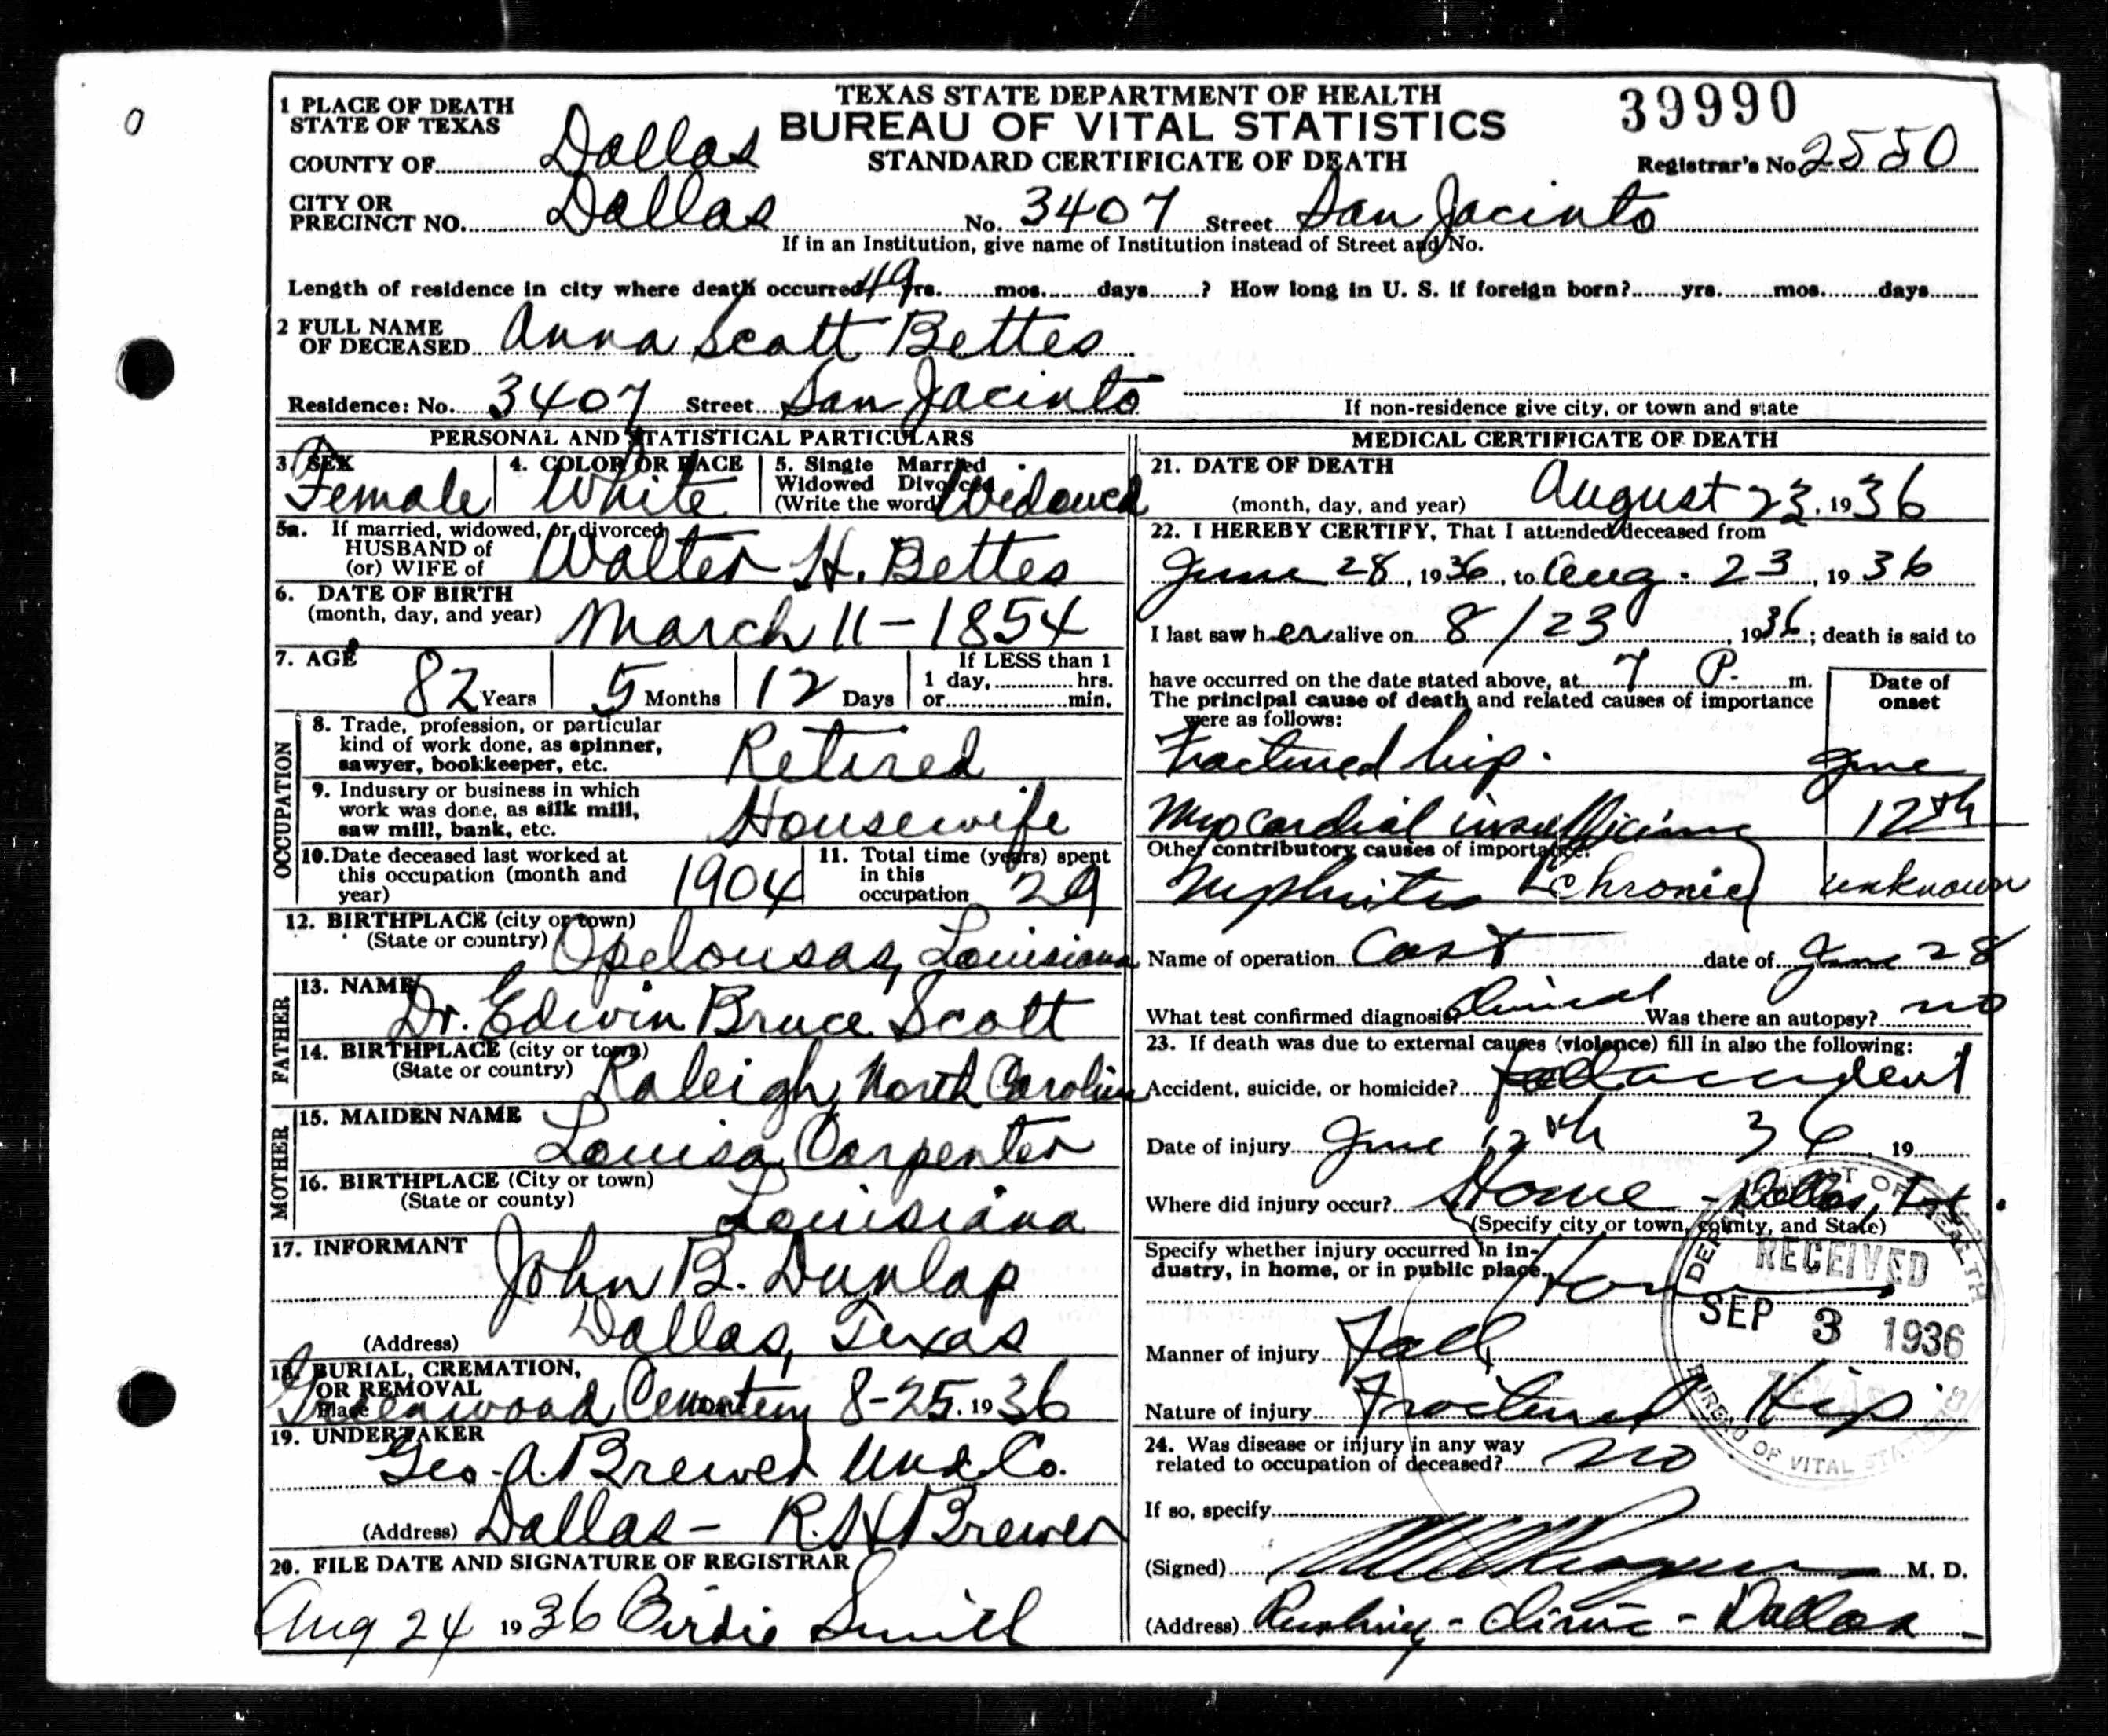 0
TEXAS STATE DEPARTMENT OF HEALTH
BUREAU OF VITAL STATISTICS
STANDARD CERTIFICATE OF DEATH
39990
Registrar's No. 2550
1 PLACE OF DEATH
STATE OF TEXAS
COUNTY OF Dallas
CITY OR
PRECINCT NO. Dallas No. 3407 Street San Jacinto
If in an Institution, give name of Institution instead of Street and No.
Length of residence in city where death occurred 49 yrs. mos. days ? How long in U. S. if foreign born? yrs. mos. days
2 FULL NAME
OF DECEASED Anna Scott Bettes
Residence: No. 3407 Street San Jacinto
If non-residence give city, or town and state
PERSONAL AND STATISTICAL PARTICULARS
3. SEX
Female
4. COLOR OR RACE
White
5. Single Married
Widowed Divorced
(Write the word) Widowed
5a. If married, widowed, or divorced
HUSBAND of
(or) WIFE of Walter H. Bettes
6. DATE OF BIRTH
(month, day, and year) March 11-1854
7. AGE
82 Years 5 Months 12 Days
If LESS than 1
1 day, hrs.
or min.
OCCUPATION
8. Trade, profession, or particular
kind of work done, as spinner,
sawyer, bookkeeper, etc. Retired
9. Industry or business in which
work was done, as silk mill,
saw mill, bank, etc. Housewife
10. Date deceased last worked at
this occupation (month and
year) 1904
11. Total time (years) spent
in this
occupation 29
12. BIRTHPLACE (city or town)
(State or country) Opelousas, Louisiana
FATHER
13. NAME
Dr. Edwin Bruce Scott
14. BIRTHPLACE (city or town)
(State or country) Raleigh, North Carolina
MOTHER
15. MAIDEN NAME
Louisa Carpenter
16. BIRTHPLACE (City or town)
(State or county) Louisiana
17. INFORMANT
John B. Dunlap
(Address) Dallas, Texas
18. BURIAL, CREMATION,
OR REMOVAL
Place Greenwood Cemetery 8-25. 1936
19. UNDERTAKER
Geo. A. Brewer Und. Co.
(Address) Dallas - R. H Brewer
20. FILE DATE AND SIGNATURE OF REGISTRAR
Aug 24 1936 Birdie Smith
MEDICAL CERTIFICATE OF DEATH
21. DATE OF DEATH
(month, day, and year) August 23, 1936
22. I HEREBY CERTIFY, That I attended deceased from
June 28, 1936, to Aug. 23, 1936
I last saw her alive on 8/23, 1936; death is said to
have occurred on the date stated above, at 7 P. m.
The principal cause of death and related causes of importance
were as follows:
Date of
onset
Fractured hip. June
Myocardial 12th
Other contributory causes of importance:
Nephritis (Chronic) unknown
Name of operation Cast date of June 28
What test confirmed diagnosis? Clinical Was there an autopsy? no
23. If death was due to external causes (violence) fill in also the following:
Accident, suicide, or homicide? accident
Date of injury June 12th 36, 19
Where did injury occur? Home - Dallas, Tex.
(Specify city or town, county, and State)
Specify whether injury occurred in in-
dustry, in home, or in public place. Home
Manner of injury Fall
Nature of injury Fractured Hip
24. Was disease or injury in any way
related to occupation of deceased? no
If so, specify
(Signed) M. D.
(Address) Clinic - Dallas
DEPARTMENT OF HEALTH
RECEIVED
SEP 3 1936
TEXAS
BUREAU OF VITAL STATISTICS